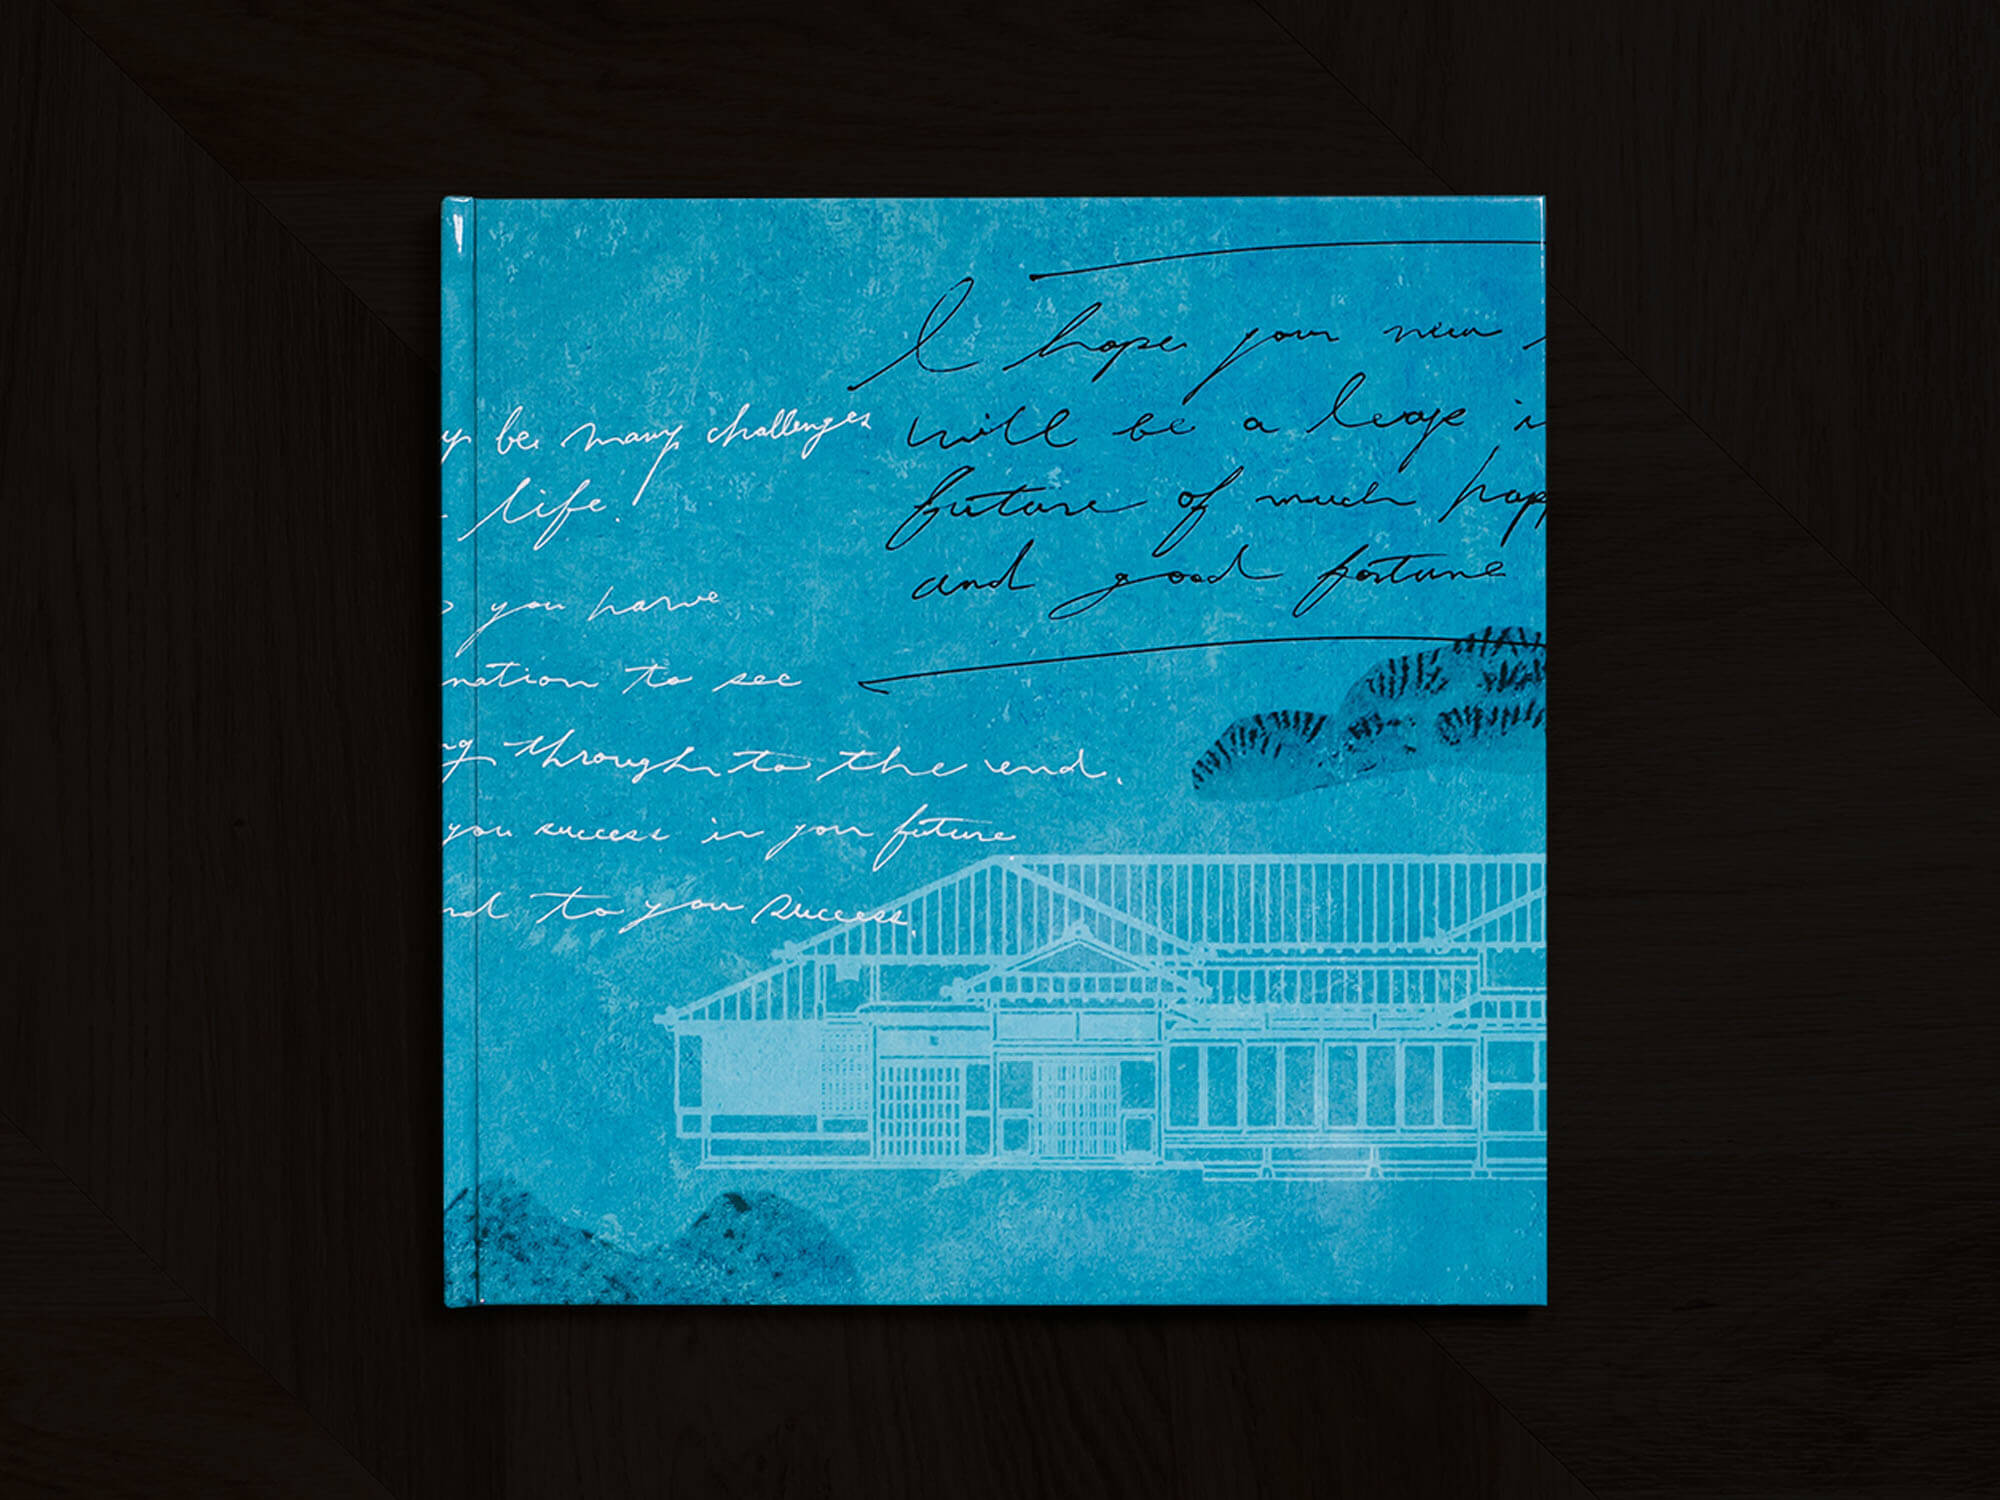 I hope your new
will be a leap i
future of much happ
and good fortune
y be many challenges
life.
you have
nation to see
ng through to the end.
you success in your future
nd to your success.